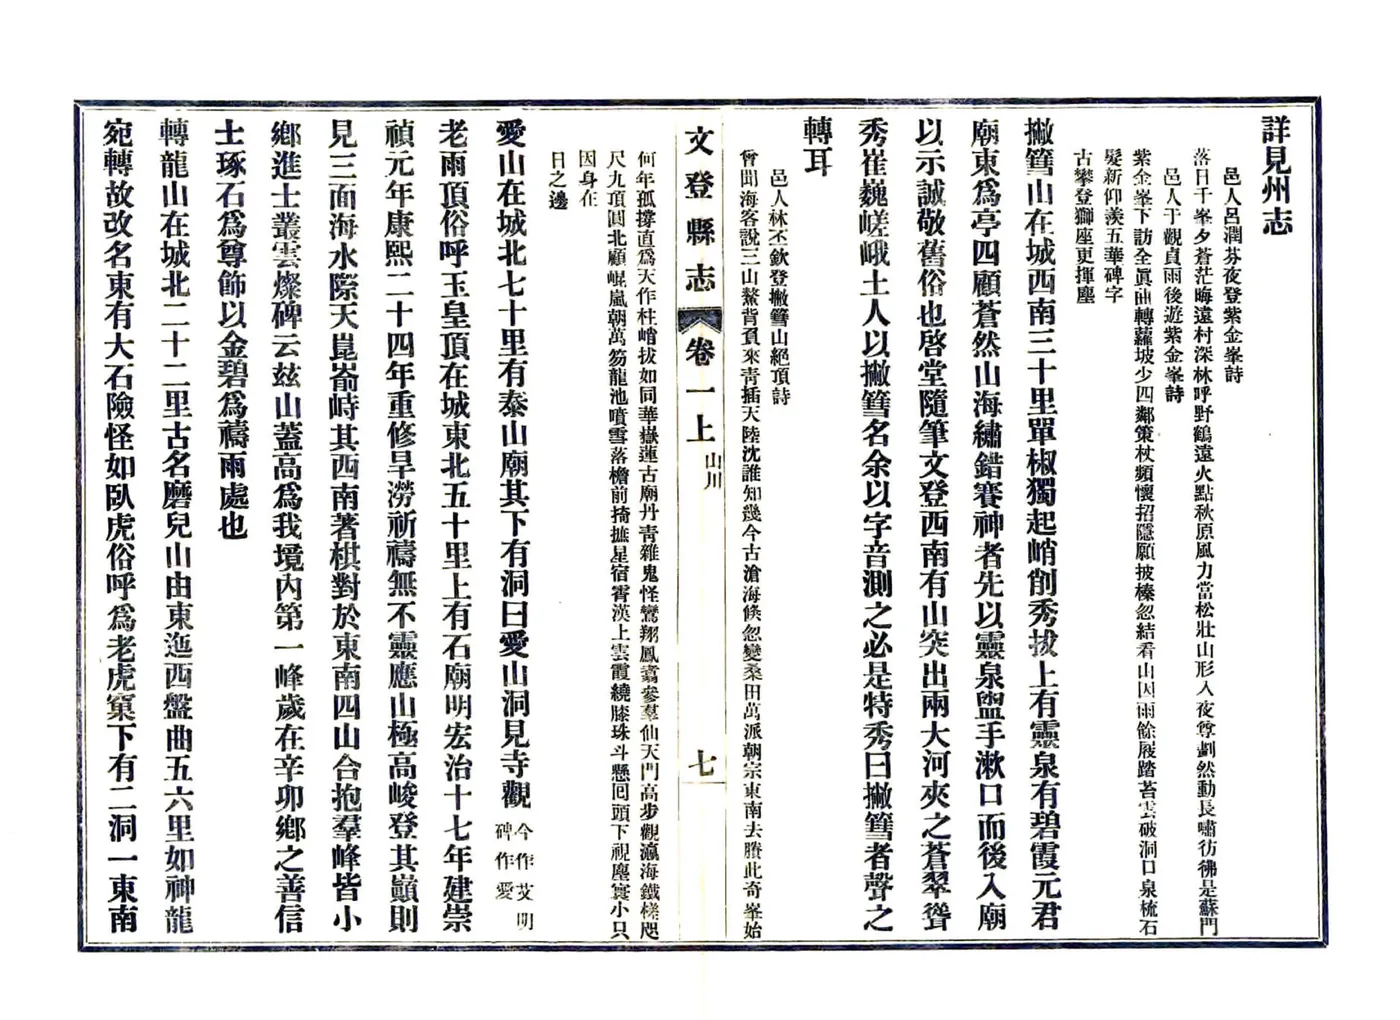 詳見州志
邑人呂潤芬夜登紫金峯詩
落日千峯夕蒼茫晦遠村深林呼野鶴遠火點秋原風力當松壯山形入夜尊劃然動長嘯彷彿是蘇門
邑人于觀貞雨後遊紫金峯詩
紫金峯下訪全眞曲轉蘿坡少四鄰策杖頻懷招隱願披榛忽結看山因雨餘屐踏苔雲破洞口泉梳石
髮新仰羨五華碑字
古攀登獅座更揮塵
撇簪山在城西南三十里單椒獨起峭削秀拔上有靈泉有碧霞元君
廟東爲亭四顧蒼然山海繡錯賽神者先以靈泉盥手漱口而後入廟
以示誠敬舊俗也啓堂隨筆文登西南有山突出兩大河夾之蒼翠聳
秀崔巍嵯峨土人以撇簪名余以字音測之必是特秀曰撇簪者聲之
轉耳
邑人林丕欽登撇簪山絕頂詩
曾聞海客說三山鰲背負來靑插天陸沈誰知幾今古滄海倐忽變桑田萬派朝宗東南去賸此奇峯始
文登縣志
卷一上
山川
七
何年孤撐直爲天作柱峭拔如同華嶽蓮古廟丹靑雜鬼怪鸞翔鳳翥參羣仙天門高步觀瀛海鐵槎咫
尺九頂圓北顧崐嵐朝萬笏龍池噴雪落檐前掎摭星宿霄漢上雲霞繞膝珠斗懸囘頭下視塵寰小只
因身在
日之邊
愛山在城北七十里有泰山廟其下有洞曰愛山洞見寺觀今作艾明
碑作愛
老雨頂俗呼玉皇頂在城東北五十里上有石廟明宏治十七年建崇
禎元年康熙二十四年重修旱澇祈禱無不靈應山極高峻登其巔則
見三面海水際天崑崙峙其西南著棋對於東南四山合抱羣峰皆小
鄉進士叢雲燦碑云茲山蓋高爲我境內第一峰歲在辛卯鄉之善信
士琢石爲尊飾以金碧爲禱雨處也
轉龍山在城北二十二里古名磨兒山由東迤西盤曲五六里如神龍
宛轉故改名東有大石險怪如臥虎俗呼爲老虎窠下有二洞一東南